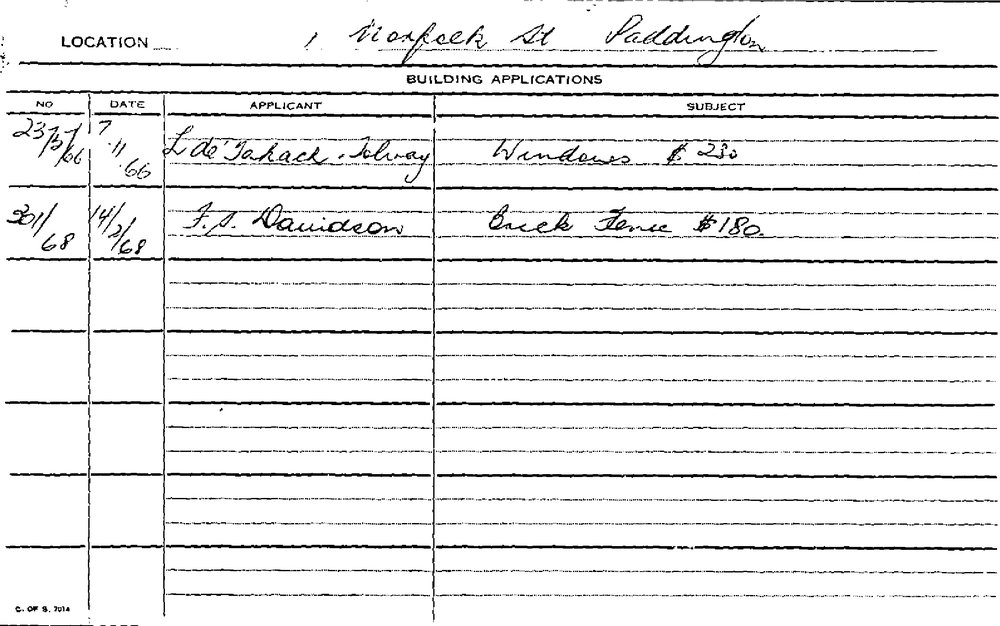 LOCATION 1 Norfolk St Paddington
BUILDING APPLICATIONS
NO DATE APPLICANT SUBJECT
/66 7.11.66 L de Windows $ 230
301/68 14/2/68 F.S. Davidson Brick Fence $180.
C. OF S. 7014